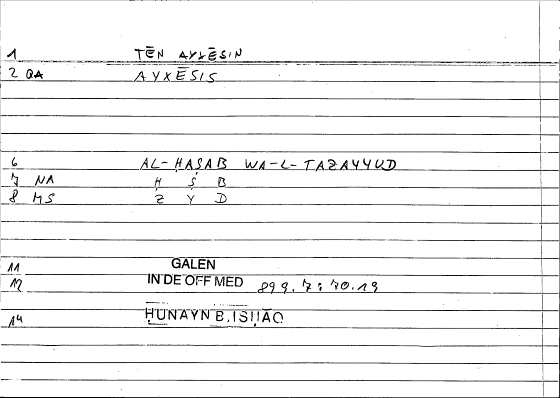 1 TĒN AYXĒSIN
2 QA AYXĒSIS
6 AL-ḤAṢAB WA-L-TAZAYYUD
7 NA Ḥ Ṣ B
8 MS Z Y D
11 GALEN
12 IN DE OFF MED 899.7:70.19
14 ḤUNAYN B. ISḤĀQ